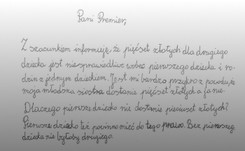 Pani Premier,
Z szacunkiem informuję, że pięćset złotych dla drugiego
dziecka jest niesprawiedliwe wobec pierwszego dziecka i ro-
dzin z jednym dzieckiem. Jest mi bardzo przykro z powodu, że
moja młodsza siostra dostanie pięćset złotych a ja nie.
Dlaczego pierwsze dziecko nie dostanie pięciuset złotych?
Pierwsze dziecko też powinno mieć do tego prawo. Bez pierwszego
dziecka nie byłoby drugiego